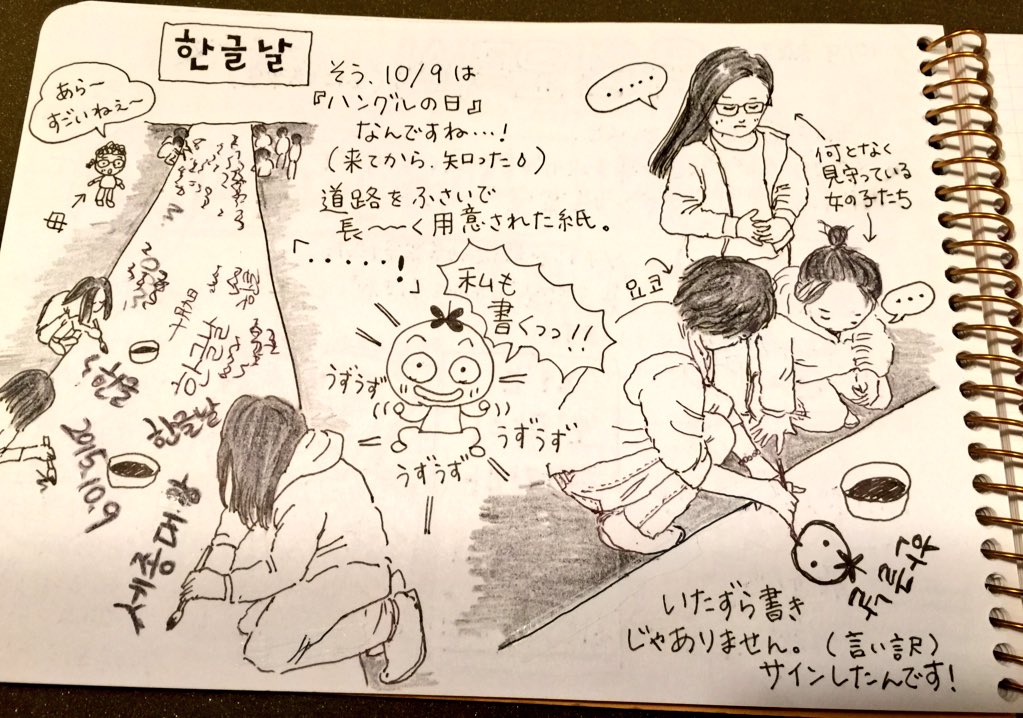 한글날
あら〜
すごいねぇ〜
母
そう、10/9は
『ハングルの日』
なんですね…!
(来てから、知った)
道路をふさいで
長〜〜く用意された紙。
「・・・・・・!」
私も
書くっっ!!
うずうず
うずうず
うずうず
・・・・
何となく
見守っている
女の子たち
・・・
요코
한글
한글날
2015.10.9
세종대왕
いたずら書き
じゃありません。(言い訳)
サインしたんです!